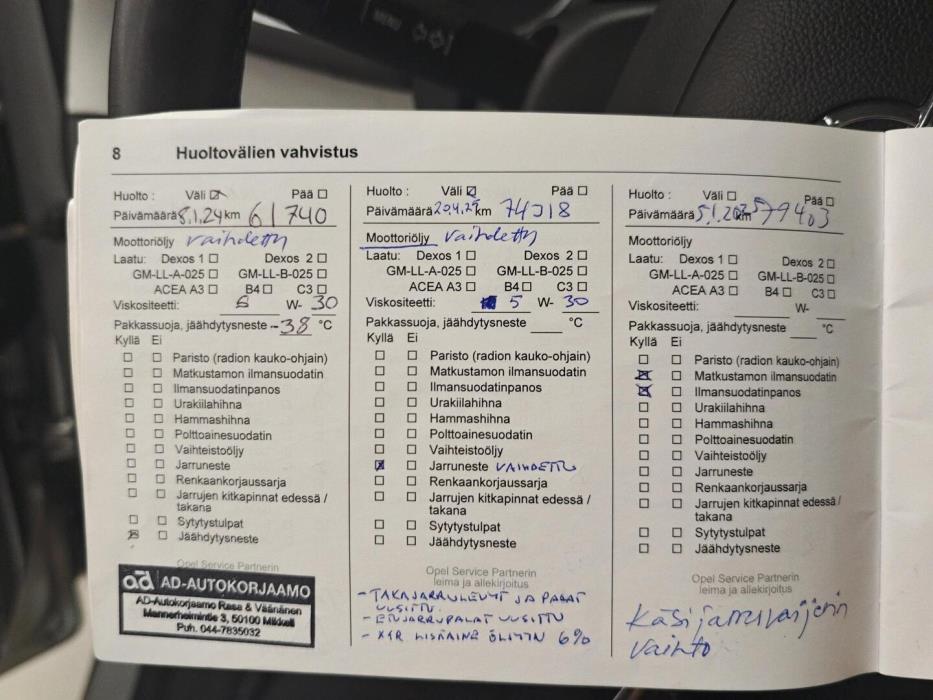 MENU
8 Huoltovälien vahvistus
Huolto : Väli ☒ Pää ☐
Päivämäärä 8.1.24 km 61740
Moottoriöljy vaihdettu
Laatu: Dexos 1 ☐ Dexos 2 ☐
GM-LL-A-025 ☐ GM-LL-B-025 ☐
ACEA A3 ☐ B4 ☐ C3 ☐
Viskositeetti: 5 W- 30
Pakkassuoja, jäähdytysneste -38 °C
Kyllä Ei
☐ ☐ Paristo (radion kauko-ohjain)
☐ ☐ Matkustamon ilmansuodatin
☐ ☐ Ilmansuodatinpanos
☐ ☐ Urakiilahihna
☐ ☐ Hammashihna
☐ ☐ Polttoainesuodatin
☐ ☐ Vaihteistoöljy
☐ ☐ Jarruneste
☐ ☐ Renkaankorjaussarja
☐ ☐ Jarrujen kitkapinnat edessä /
takana
☐ ☐ Sytytystulpat
☒ ☐ Jäähdytysneste
Opel Service Partnerin
ad AD-AUTOKORJAAMO
AD-Autokorjaamo Rasa & Väänänen
Mannerheimintie 3, 50100 Mikkeli
Puh. 044-7835032
Huolto : Väli ☒ Pää ☐
Päivämäärä 20.4.24 km 74018
Moottoriöljy vaihdettu
Laatu: Dexos 1 ☐ Dexos 2 ☐
GM-LL-A-025 ☐ GM-LL-B-025 ☐
ACEA A3 ☐ B4 ☐ C3 ☐
Viskositeetti: 5 W- 30
Pakkassuoja, jäähdytysneste °C
Kyllä Ei
☐ ☐ Paristo (radion kauko-ohjain)
☐ ☐ Matkustamon ilmansuodatin
☐ ☐ Ilmansuodatinpanos
☐ ☐ Urakiilahihna
☐ ☐ Hammashihna
☐ ☐ Polttoainesuodatin
☐ ☐ Vaihteistoöljy
☒ ☐ Jarruneste VAIHDETTU
☐ ☐ Renkaankorjaussarja
☐ ☐ Jarrujen kitkapinnat edessä /
takana
☐ ☐ Sytytystulpat
☐ ☐ Jäähdytysneste
Opel Service Partnerin
leima ja allekirjoitus
- TAKAJARRULEVYT JA PALAT
UUSITTU
- ETUJARRUPALAT UUSITTU
- XTR LISÄAINE ÖLJYYN 6%
Huolto : Väli ☐ Pää ☐
Päivämäärä 5.1.2025 km 79403
Moottoriöljy
Laatu: Dexos 1 ☐ Dexos 2 ☐
GM-LL-A-025 ☐ GM-LL-B-025 ☐
ACEA A3 ☐ B4 ☐ C3 ☐
Viskositeetti: W-
Pakkassuoja, jäähdytysneste °C
Kyllä Ei
☐ ☐ Paristo (radion kauko-ohjain)
☒ ☐ Matkustamon ilmansuodatin
☒ ☐ Ilmansuodatinpanos
☐ ☐ Urakiilahihna
☐ ☐ Hammashihna
☐ ☐ Polttoainesuodatin
☐ ☐ Vaihteistoöljy
☐ ☐ Jarruneste
☐ ☐ Renkaankorjaussarja
☐ ☐ Jarrujen kitkapinnat edessä /
takana
☐ ☐ Sytytystulpat
☐ ☐ Jäähdytysneste
Opel Service Partnerin
leima ja allekirjoitus
Käsijarruvaijerin
vaihto